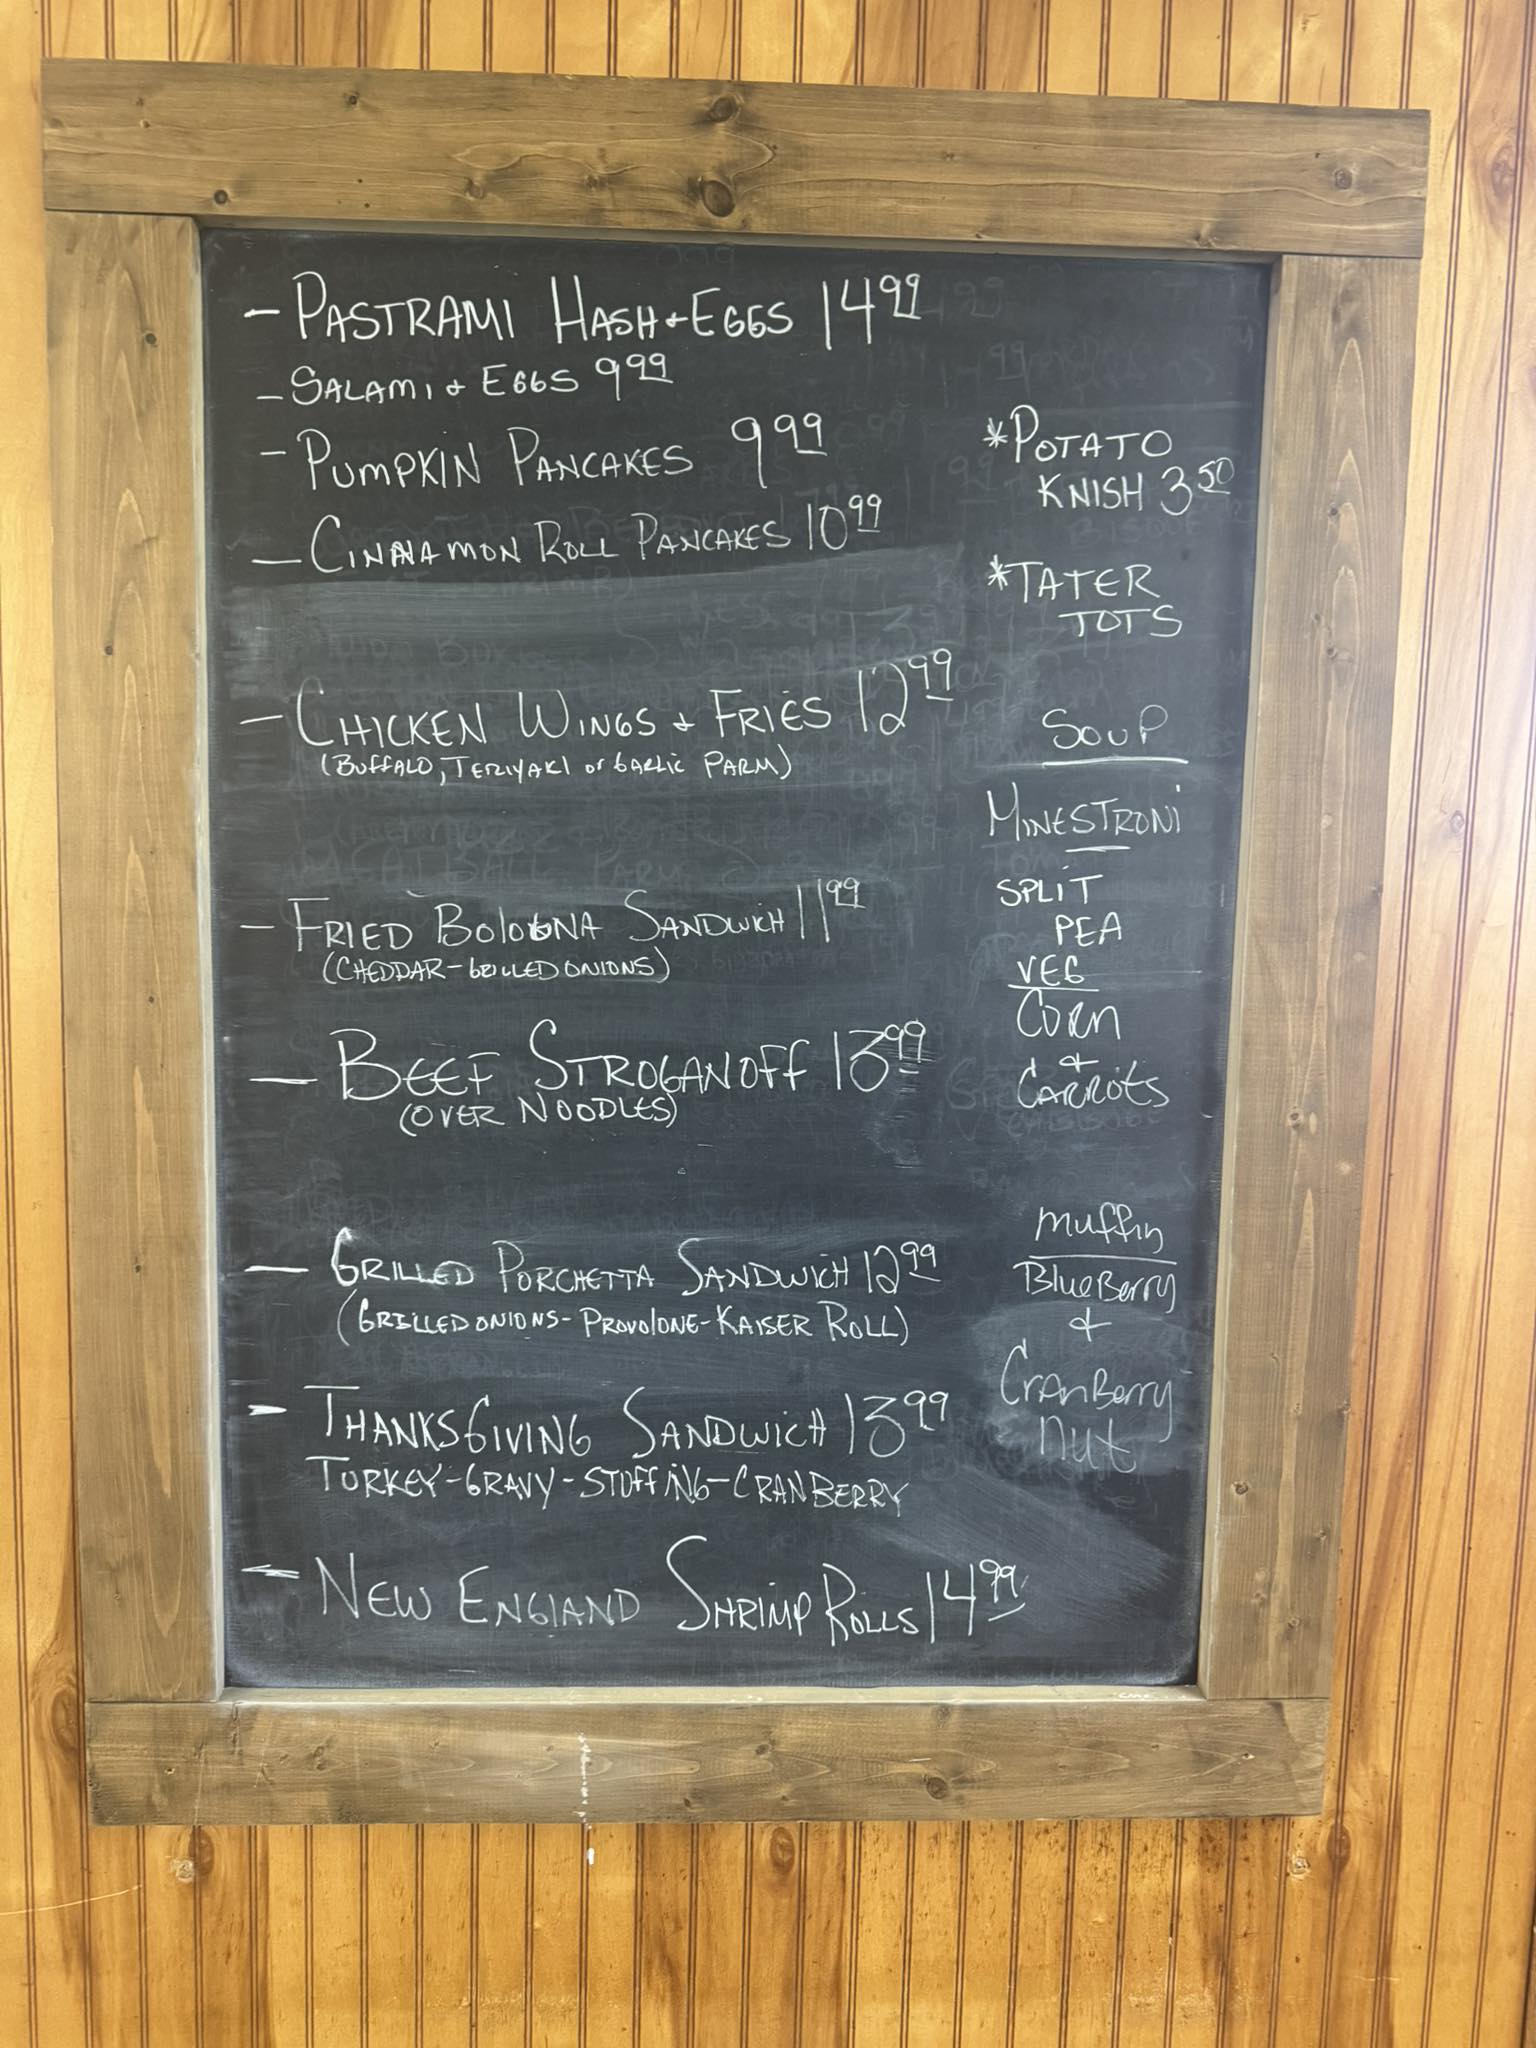 - PASTRAMI HASH + EGGS 14.99
- SALAMI + EGGS 9.99
- PUMPKIN PANCAKES 9.99
- CINNAMON ROLL PANCAKES 10.99
- CHICKEN WINGS + FRIES 12.99
(BUFFALO, TERIYAKI or GARLIC PARM)
- FRIED BOLOGNA SANDWICH 11.99
(CHEDDAR - GRILLED ONIONS)
- BEEF STROGANOFF 13.99
(OVER NOODLES)
- GRILLED PORCHETTA SANDWICH 12.99
(GRILLED ONIONS - PROVOLONE - KAISER ROLL)
- THANKSGIVING SANDWICH 13.99
TURKEY - GRAVY - STUFFING - CRANBERRY
- NEW ENGLAND SHRIMP ROLLS 14.99
*POTATO
KNISH 3.50
*TATER
TOTS
SOUP
MINESTRONI
SPLIT
PEA
VEG
CORN
+
CARROTS
Muffin
BlueBerry
+
CranBerry
Nut